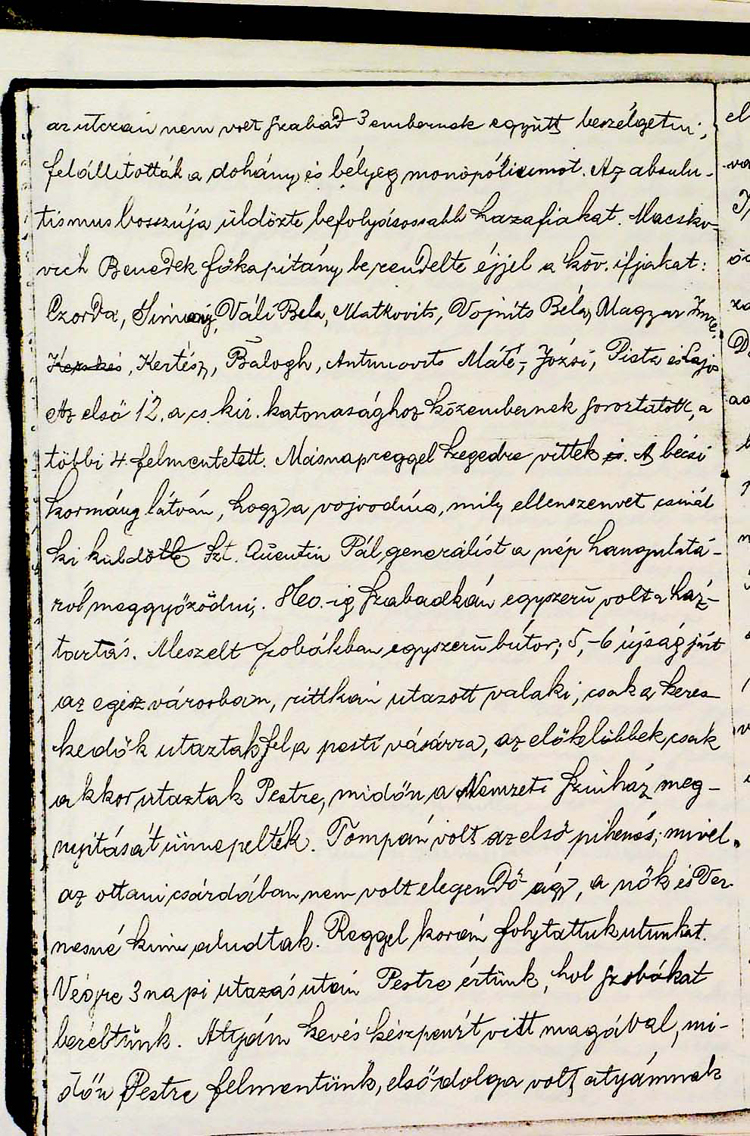 az utczán nem volt szabad 3 embernek együtt beszélgetni;
felállították a dohány és bélyeg monopóliumot. Az absolu-
tismus bosszúja üldözte befolyásosabb hazafiakat. Macsko-
vich Benedek főkapitány berendelte éjjel a köv. ifjakat:
Czorda, Váli Bela, Matkovits, Vojnits Béla, Magyar Imre,
Kertész, Balogh, Antunovits Máté, Józsi, Pista és Lajos
Az első 12. a cs. kir. katonasághoz közembernek soroztatott, a
többi 4. felmentetett. Másnap reggel Szegedre vitték. A bécsi
kormány látván, hogy a vojvodina, mily ellenszenvet csinál
ki küldött Szt. Quentin Pál generálist a nép hangulatá-
ról meggyőződni. 860.-ig Szabadkán egyszerü volt a ház-
tartás. Meszelt szobákban egyszerü butor; 5,-6 újság járt
az egész városban, rittkán utazott valaki, csak a keres
kedők utaztak fel a pesti vásárra, az előklőbbek csak
akkor utaztak Pestre, midőn a Nemzeti Szinház meg-
nyitását ünnepelték. Tompán volt az első pihenés; mivel
az ottani csárdában nem volt elegendő ágy, a nők és Ter
nesné kinn aludtak. Reggel korán folytattuk utunkat.
Végre 3 napi utazás után Pestre értünk, hol szobákat
béreltünk. Atyám kevés készpénzt vitt magával, mi-
dőn Pestre felmentünk, első dolga volt atyámnak